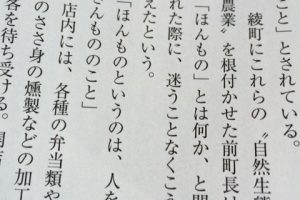 こと」とされている。
綾町にこれらの〝自然生
農業〟を根付かせた前町長
「ほんもの」とは何か、と
れた際に、迷うことなくこう
えたという。
「ほんものというのは、人を
さんもののこと」
店内には、各種の弁当類や
のささ身の燻製などの加工
客を待ち受ける。